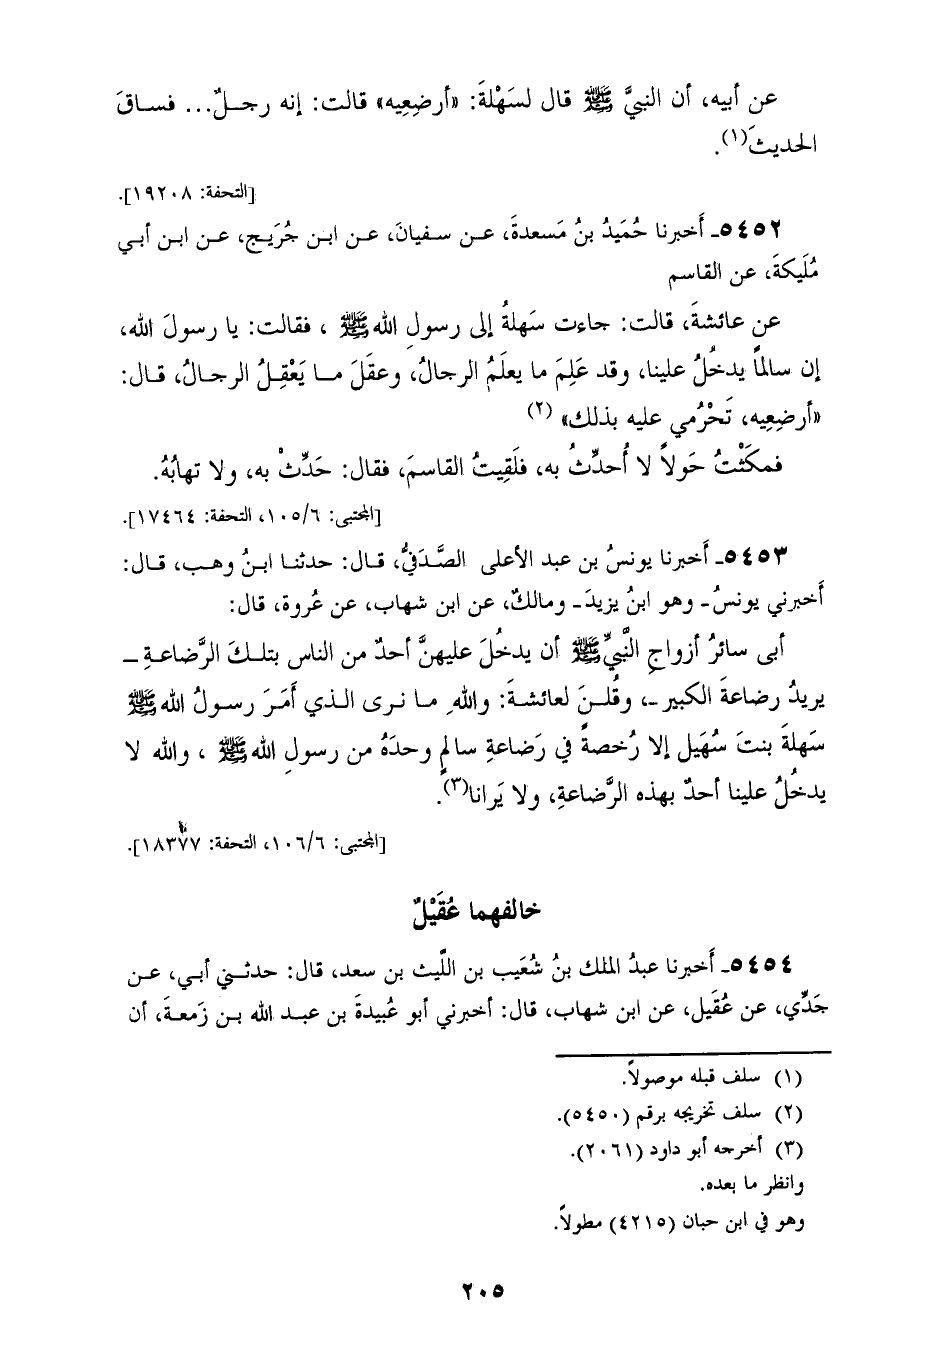 عن أبيه، أن النبيَّ ﷺ قال لسَهْلةَ: «أرضِعِيه» قالت: إنه رجـلٌ... فسـاقَ
الحديثَ(١).
[التحفة: ١٩٢٠٨].
٥٤٥٢ـ أَخبرنا حُمَيدُ بنُ مَسعدةَ، عـن سـفيانَ، عـن ابـن جُرَيـج، عـن ابـن أبـي
مُلَيكةَ، عن القاسم
عن عائشةَ، قالت: جاءت سَهلةُ إلى رسولِ اللهﷺ ، فقالت: يا رسولَ الله،
إن سالماً يدخُلُ علينا، وقد عَلِمَ ما يعلَمُ الرجالُ، وعقَلَ مـا يَعْقِـلُ الرجـالُ، قـال:
«أرضِعِيه، تَحْرُمي عليه بذلك» (٢)
فمكَثْتُ حَولاً لا أُحدِّثُ به، فلَقِيتُ القاسمَ، فقال: حَدِّثْ به، ولا تهابُهُ.
[المجتبى: ١٠٥/٦، التحفة: ١٧٤٦٤].
٥٤٥٣ـ أَخبرنا يونسُ بن عبد الأعلى الصَّدَفيُّ، قـال: حدثنـا ابـنُ وهـب، قـال:
أَخبرني يونسُ- وهو ابنُ يزيدَ- ومالكٌ، عن ابن شهاب، عن عُروة، قال:
أبى سائرُ أزواجِ النَّبيِّﷺ أن يدخُلَ عليهنَّ أحدٌ من الناس بتلـكَ الرَّضاعـةِ ـ
يريدُ رضاعةَ الكبير ـ، وقُلـنَ لعائشـةَ: واللهِ مـا نـرى الـذي أَمَـرَ رسـولُ اللهﷺ
سَهلةَ بنتَ سُهَيل إلا رُخصةً في رَضاعةِ سالمٍ وحدَهُ من رسولِ اللهﷺ ، والله لا
يدخُلُ علينا أحدٌ بهذه الرَّضاعةِ، ولا يَرانا(٣).
[المجتبى: ١٠٦/٦، التحفة: ١٨٣٧٧].
خالفهما عُقَيْلٌ
٥٤٥٤ـ أَخبرنا عبدُ الملك بنُ شُعَيب بن اللَّيث بن سعد، قال: حدثـني أبي، عـن
جَدِّي، عن عُقَيل، عن ابن شهاب، قال: أخبرني أبو عُبيدةَ بن عبـد الله بـن زَمعـةَ، أن
(١) سلف قبله موصولاً.
(٢) سلف تخريجه برقم (٥٤٥٠).
(٣) أخرجه أبو داود (٢٠٦١).
وانظر ما بعده.
وهو في ابن حبان (٤٢١٥) مطولاً.
٢٠٥